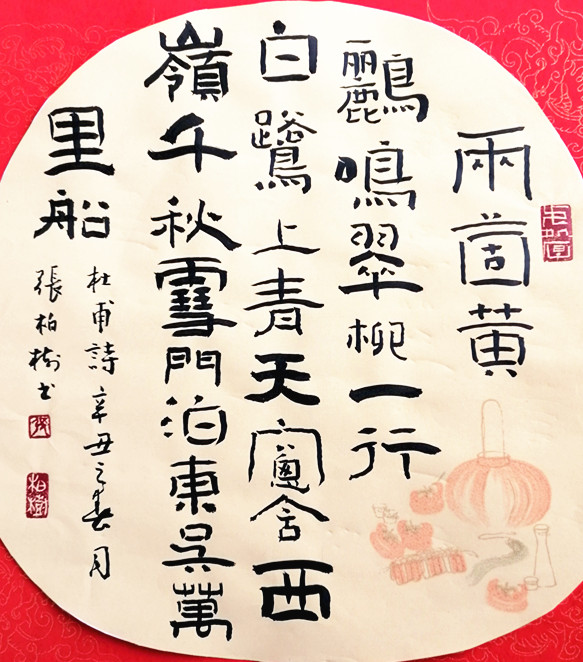 兩箇黃
鸝鳴翠柳一行
白鷺上青天窗含西
嶺千秋雪門泊東吳萬
里船
杜甫詩辛丑之春月
張柏樹书
柏樹